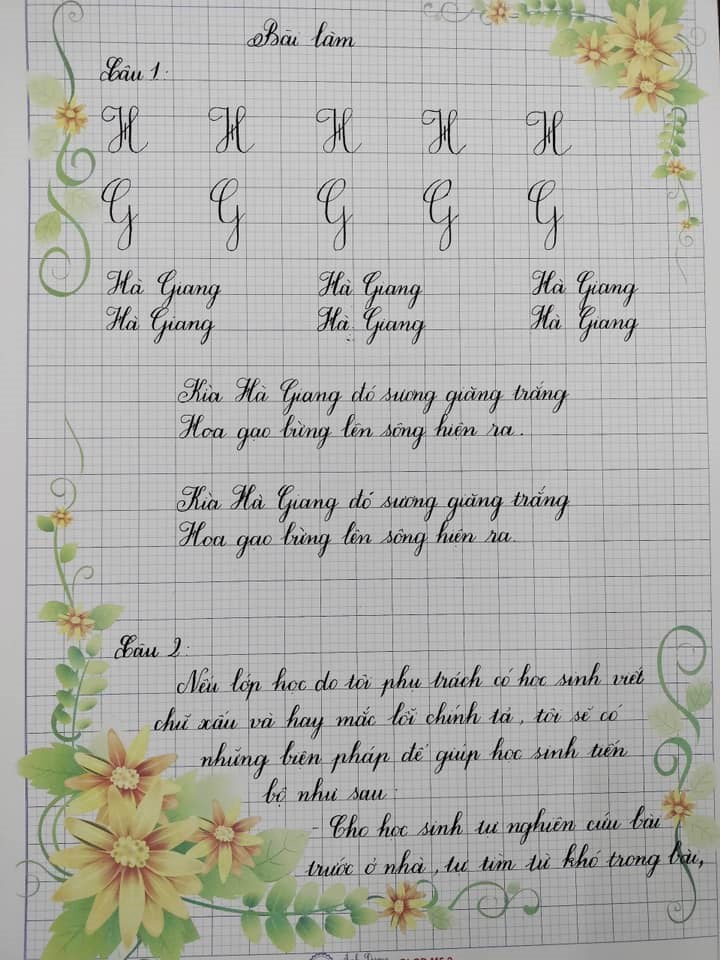 Bài làm
Câu 1:
H H H H H
G G G G G
Hà Giang Hà Giang Hà Giang
Hà Giang Hà Giang Hà Giang
Kìa Hà Giang đó sương giăng trắng
Hoa gạo bừng lên sông hiện ra.
Kìa Hà Giang đó sương giăng trắng
Hoa gạo bừng lên sông hiện ra.
Câu 2:
Nếu lớp học do tôi phụ trách có học sinh viết
chữ xấu và hay mắc lỗi chính tả, tôi sẽ có
những biện pháp để giúp học sinh tiến
bộ như sau:
- Cho học sinh tự nghiên cứu bài
trước ở nhà, tự tìm từ khó trong bài,